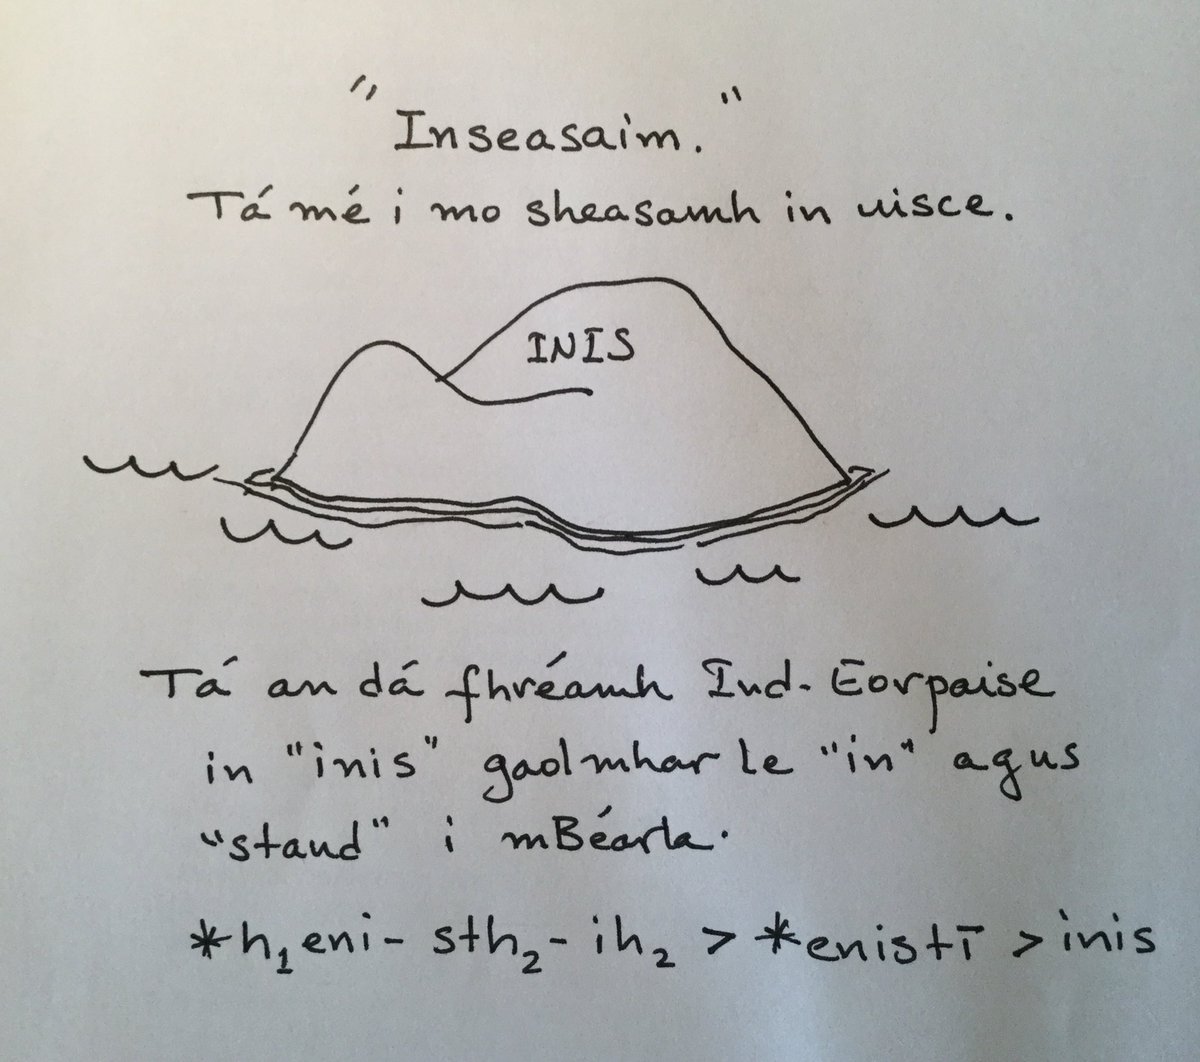 "Inseasaim."
Tá mé i mo sheasamh in uisce.
INIS
Tá an dá fhréamh Ind-Eorpaise
in "inis" gaolmhar le "in" agus
"stand" i mBéarla.
*h₁eni- sth₂-ih₂ > *enistī > inis